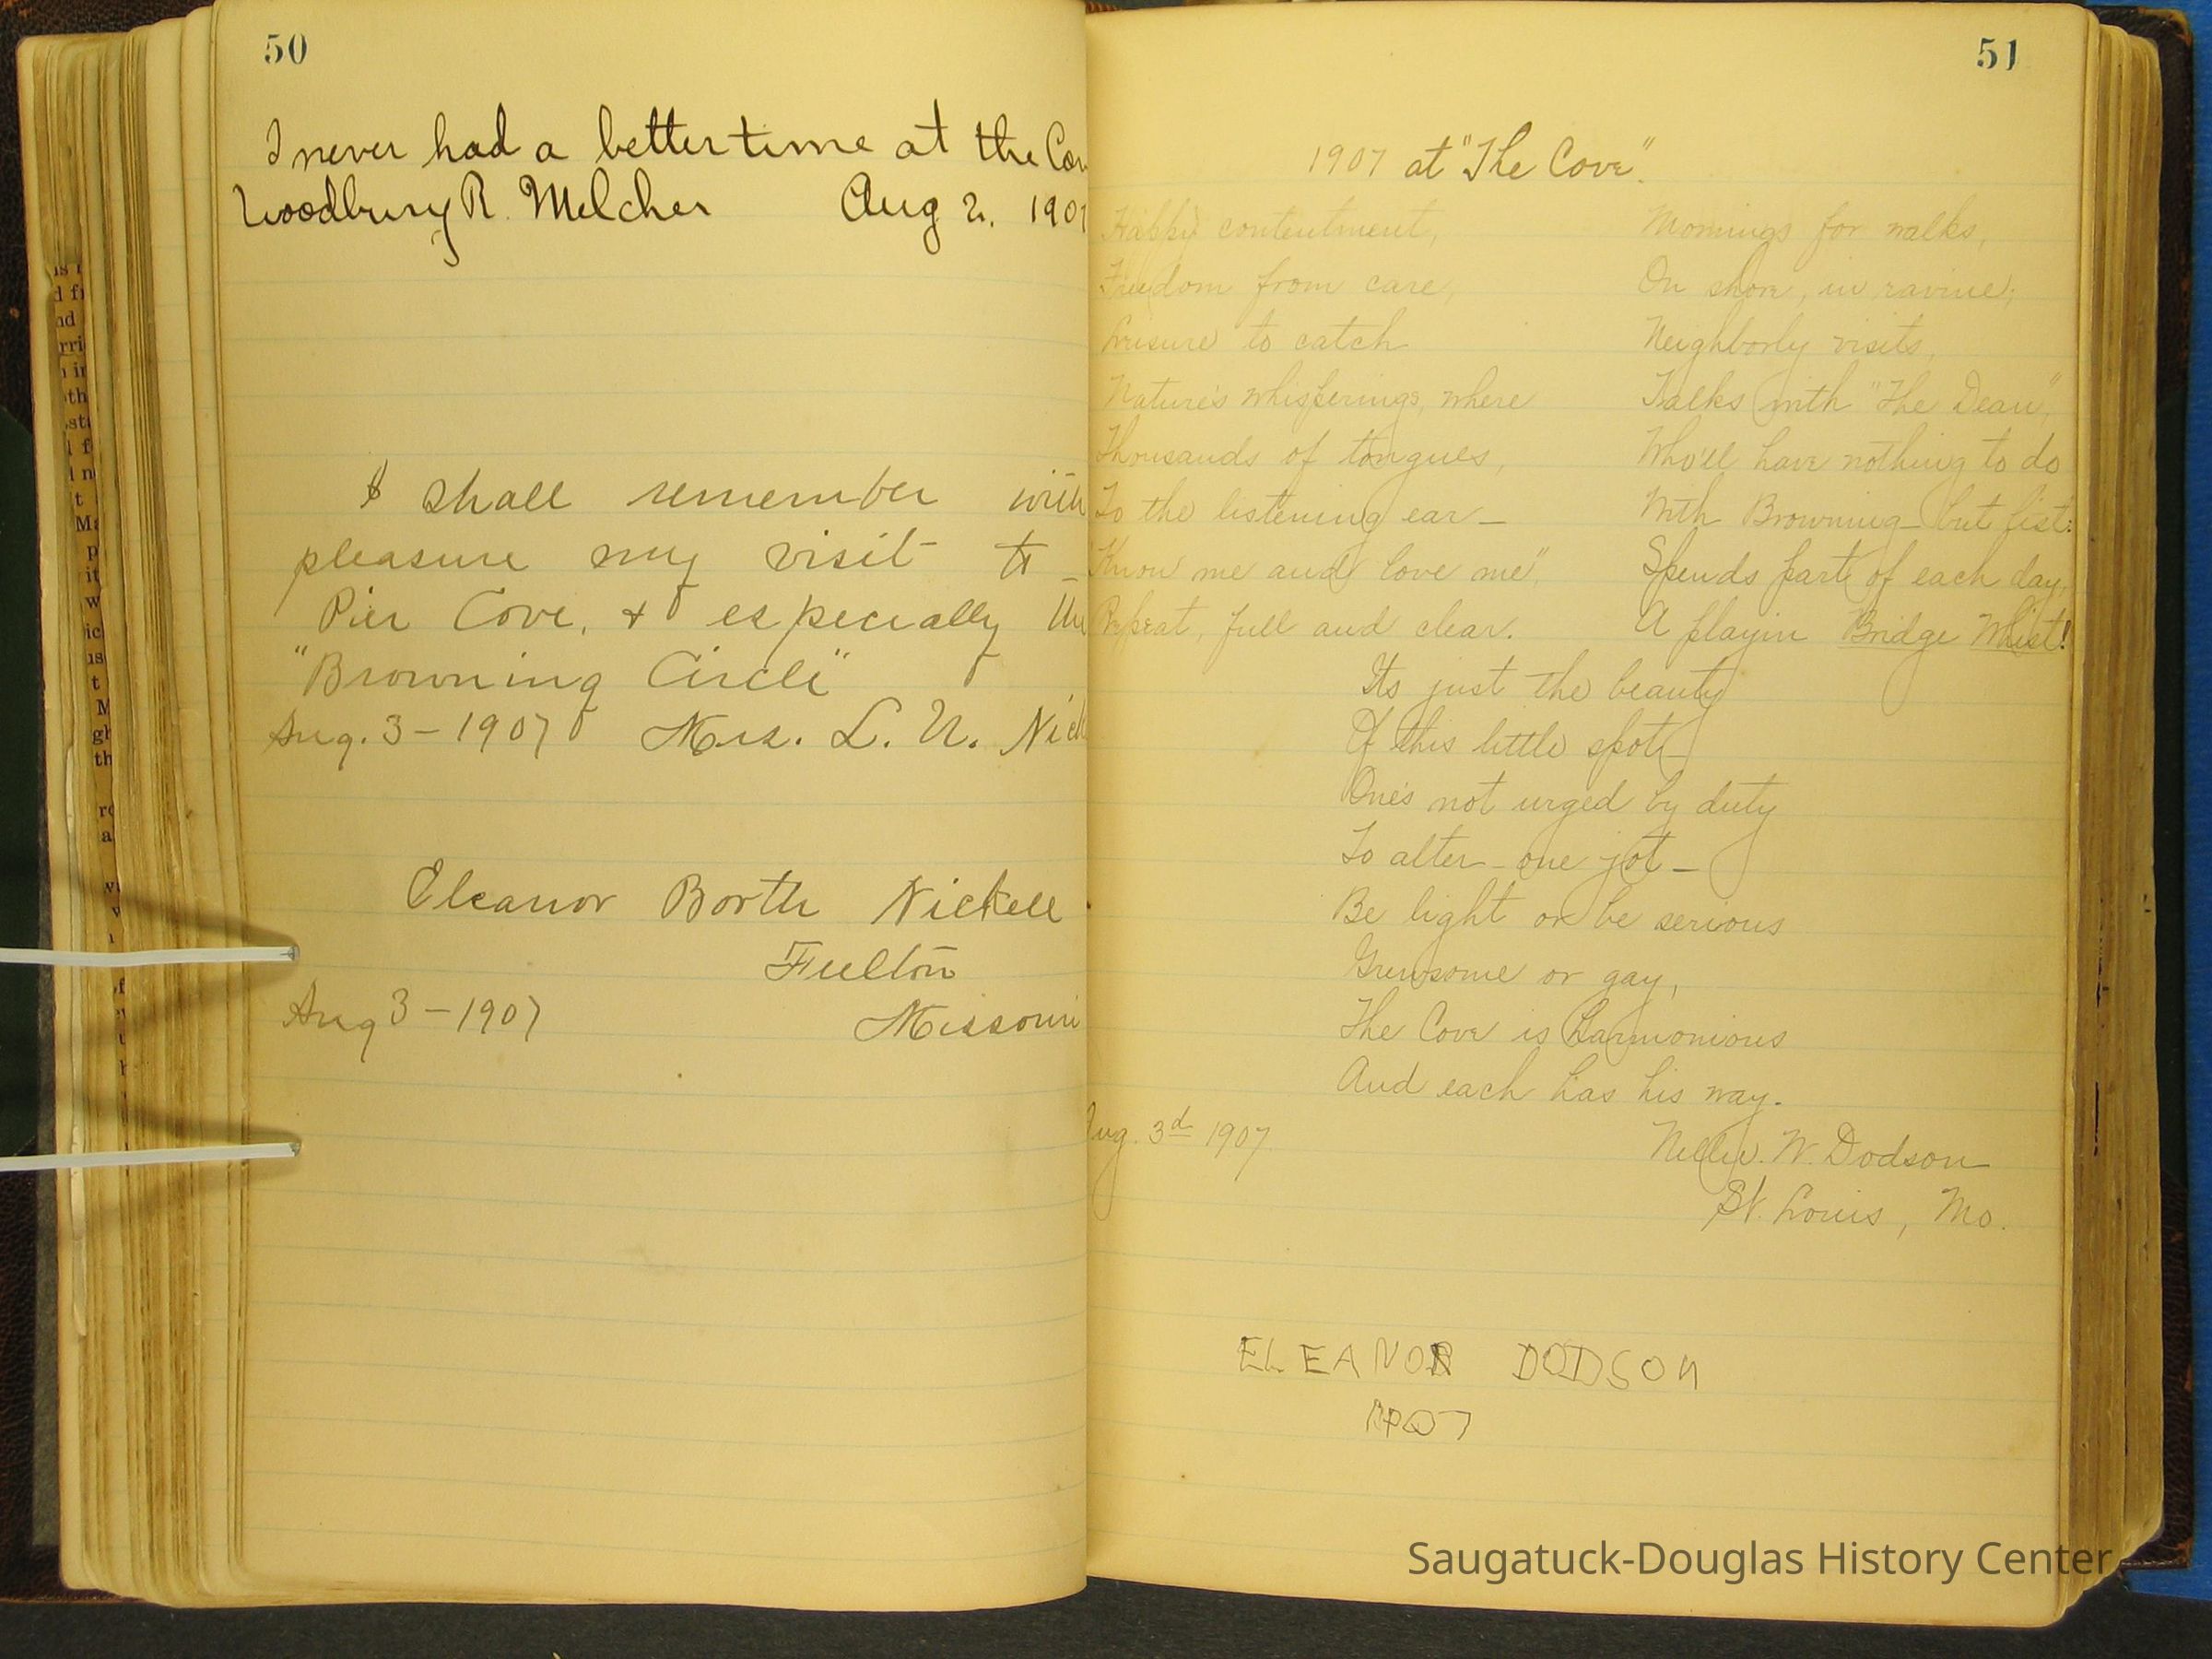 50
I never had a better time at the Cov
Woodbury R. Melcher Aug 2. 1907
I shall remember with
pleasure my visit to
Pier Cove, & especially the
"Browning Circle"
Aug. 3 - 1907 Mrs. L. N. Nick
Eleanor Borth Nickell
Fulton
Aug 3 - 1907 Missouri
51
1907 at "The Cove".
Happy contentment,
Freedom from care,
Leisure to catch
Nature's whisperings, where
Thousands of tongues,
To the listening ear—
"Know me and love me",
Repeat, full and clear.
Mornings for walks,
On shore, in ravine;
Neighborly visits,
Talks with "The Dean",
Who'll have nothing to do
With Browning— but list:
Spends part of each day,
A playin Bridge Whist!
Its just the beauty
Of this little spot—
One's not urged by duty
To alter— one jot—
Be light or be serious
Gruesome or gay,
The Cove is harmonious
And each has his way.
Aug. 3d 1907
Nellie. W. Dodson
St. Louis, Mo.
ELEANOR DODSON
1907
Saugatuck-Douglas History Center